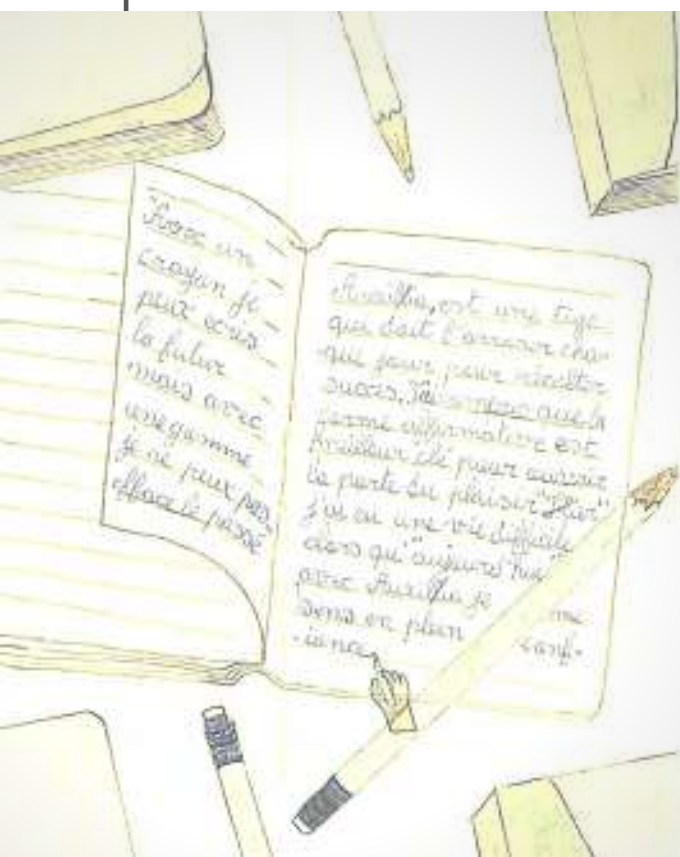 Avec un
crayon je
peux ecris
le futur
mais avec
une gomme
je ne peux pas
efface le passé
est une tige
qui doit l'arroser cha-
que jour pour récolter
succès. J'ai
forme affirmative est
clé pour ouvrir
la porte du plaisir "Hier"
j'ai eu une vie difficile
alors qu'"aujourd'hui
avec je me
sens en plein conf-
iance